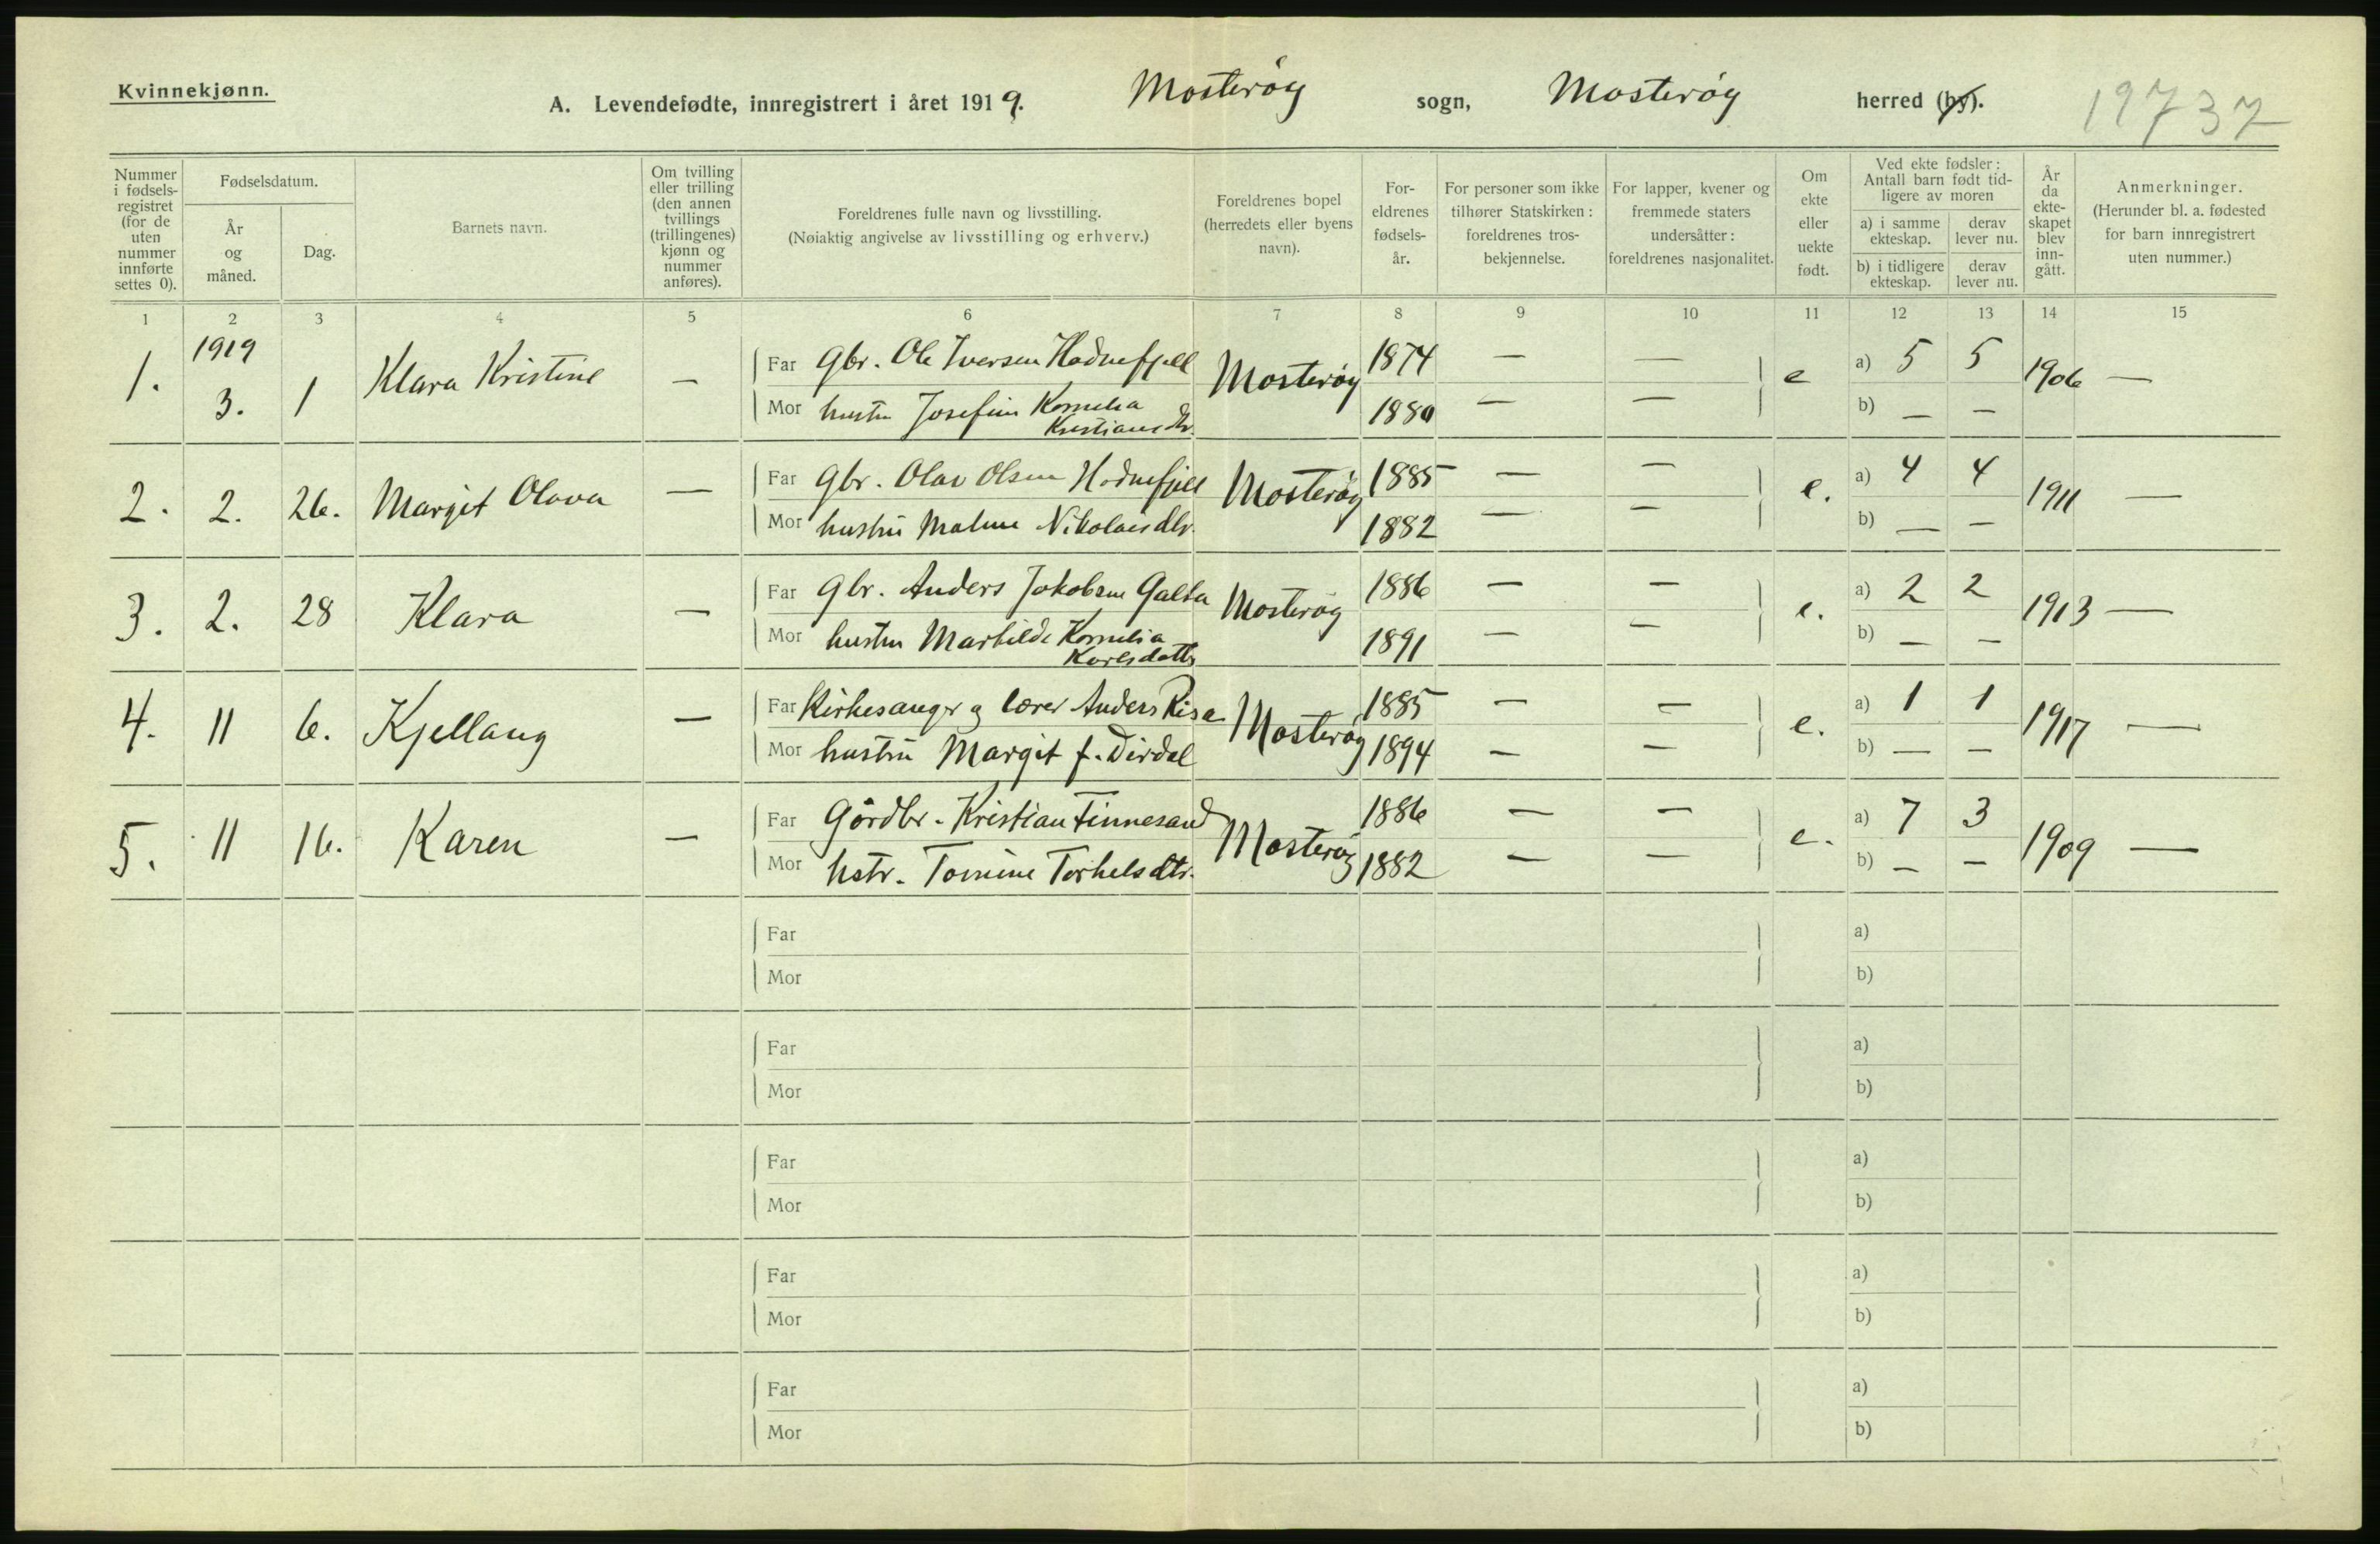 Kvinnekjønn.
A. Levendefødte, innregistrert i året 1919. Mosterøy sogn, Mosterøy herred (by). 19737
Nummer i fødselsregistret (for de uten nummer innførte settes 0). Fødselsdatum. År og måned. Dag. Barnets navn. Om tvilling eller trilling (den annen tvillings (trillingenes) kjønn og nummer anføres). Foreldrenes fulle navn og livsstilling. (Nøiaktig angivelse av livsstilling og erhverv.) Foreldrenes bopel (herredets eller byens navn). Foreldrenes fødselsår. For personer som ikke tilhører Statskirken: foreldrenes trosbekjennelse. For lapper, kvener og fremmede staters undersåtter: foreldrenes nasjonalitet. Om ekte eller uekte født. Ved ekte fødsler: Antall barn født tidligere av moren a) i samme ekteskap. derav lever nu. b) i tidligere ekteskap. derav lever nu. År da ekteskapet blev inngått. Anmerkninger. (Herunder bl. a. fødested for barn innregistrert uten nummer.)
1 2 3 4 5 6 7 8 9 10 11 12 13 14 15
1. 1919 3. 1 Klara Kristine — Far Gbr. Ole Iversen Hodnefjell Mosterøy 1874 — — e a) 5 5 1906 —
Mor hustru Josefine Kornelia Kristiansdtr. 1880 — — b) — —
2. 2. 26. Margit Olava — Far Gbr. Olav Olsen Hodnefjell Mosterøy 1885 — — e. a) 4 4 1911 —
Mor hustru Malene Nikolaisdtr. 1882 — — b) — —
3. 2. 28 Klara — Far Gbr. Anders Jakobsen Galta Mosterøy 1886 — — e. a) 2 2 1913 —
Mor hustru Marhilde Kornelia Karlsdatter 1891 — — b) — —
4. 11 6. Kjellaug — Far Kirkesanger og lærer Anders Risa Mosterøy 1885 — — e. a) 1 1 1917 —
Mor hustru Margit f. Dirdal 1894 — — b) — —
5. 11 16. Karen — Far Gårdbr. Kristian Finnesand Mosterøy 1886 — — e. a) 7 3 1909 —
Mor hstr. Tomine Torkelsdtr. 1882 — — b) — —
Far a)
Mor b)
Far a)
Mor b)
Far a)
Mor b)
Far a)
Mor b)
Far a)
Mor b)